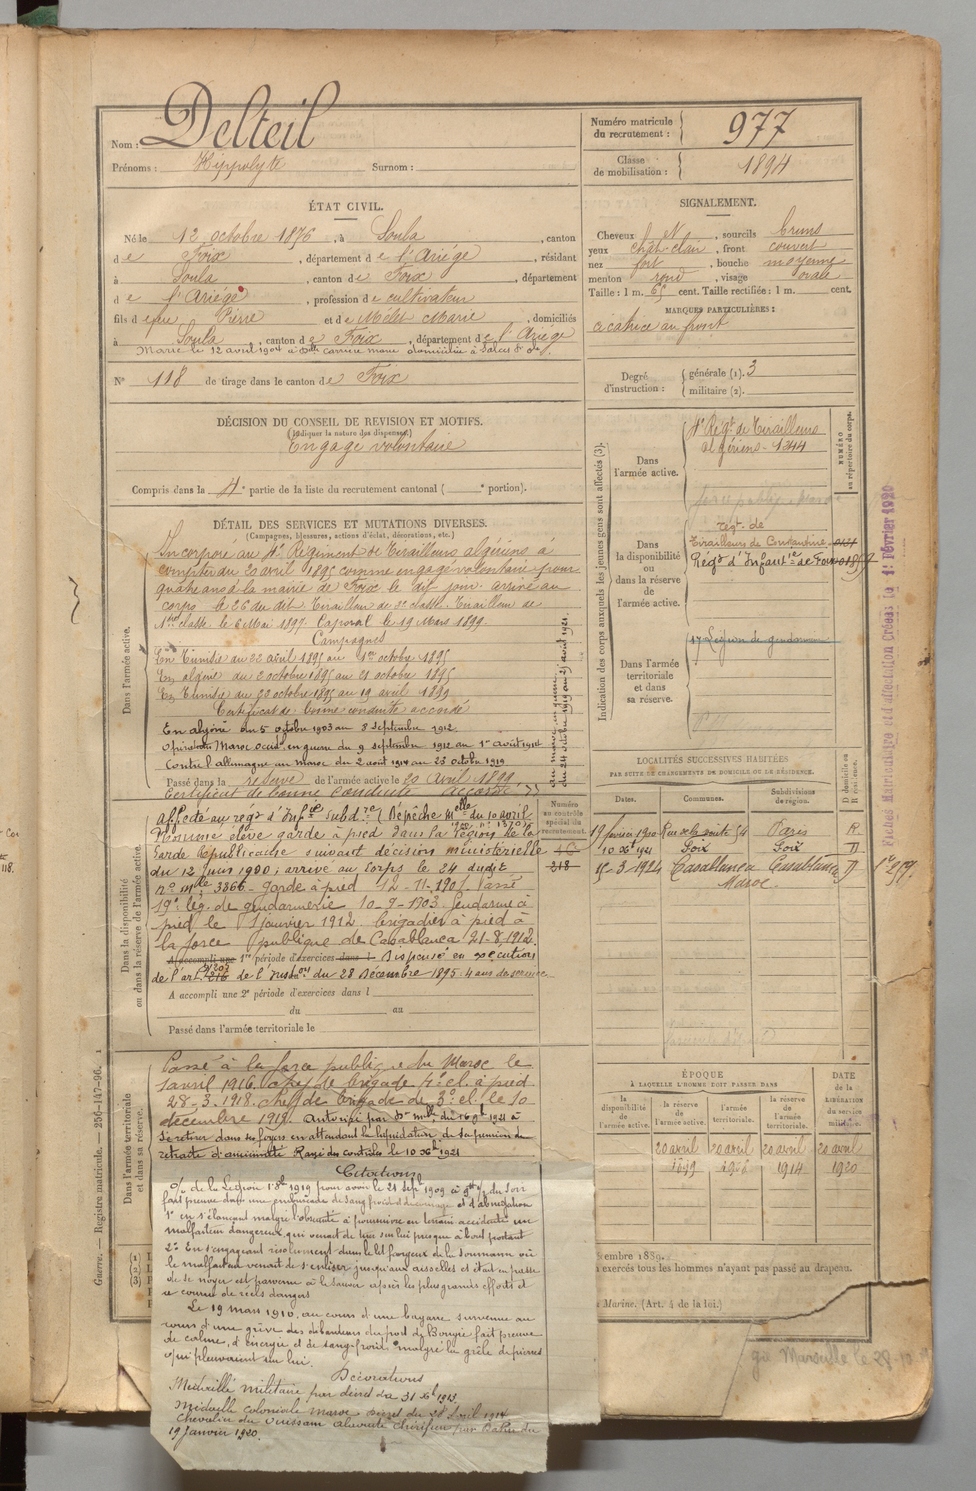 Nom : Delteil
Prénoms : Hippolyte Surnom :
Numéro matricule du recrutement : 977
Classe de mobilisation : 1894
ÉTAT CIVIL.
Né le 12 octobre 1876, à Soula, canton
de Foix, département de l'Ariège, résidant
à Soula, canton de Foix, département
de l'Ariège, profession de cultivateur
fils de feu Pierre et de Mélet Marie, domiciliés
à Soula, canton de Foix, département de l'Ariège
Marié le 12 avril 1904 à Carrière Marie domiciliée à
N° 118 de tirage dans le canton de Foix
SIGNALEMENT.
Cheveux et, sourcils bruns
yeux chât-clair, front couvert
nez fort, bouche moyenne
menton rond, visage ovale
Taille : 1 m. 65 cent. Taille rectifiée : 1 m. cent.
MARQUES PARTICULIÈRES :
cicatrice au front
Degré d'instruction : générale (1). 3
militaire (2).
DÉCISION DU CONSEIL DE REVISION ET MOTIFS.
(Indiquer la nature des dispenses)
Engagé volontaire
Compris dans la 4e partie de la liste du recrutement cantonal ( e portion).
DÉTAIL DES SERVICES ET MUTATIONS DIVERSES.
(Campagnes, blessures, actions d'éclat, décorations, etc.)
Dans l'armée active.
Incorporé au 4e Régiment de Tirailleurs algériens à
compter du 20 avril 1895 comme engagé volontaire pour
quatre ans à la mairie de Foix le dit jour. arrivé au
corps le 26 du dit. Tirailleur de 2e classe. Tirailleur de
1ère classe le 6 Mai 1897. Caporal le 19 Mars 1899.
Campagnes
En Tunisie du 22 avril 1895 au 1er octobre 1895
En algérie du 2 octobre 1895 au 21 octobre 1895
En Tunisie du 22 octobre 1895 au 19 avril 1899
Certificat de bonne conduite accordé
En algérie du 5 octobre 1903 au 8 septembre 1912.
Opérations Maroc Occid. en guerre du 9 septembre 1912 au 1er août 1914
Contre l'allemagne au maroc du 2 août 1914 au 23 octobre 1919
au maroc en guerre
du 24 octobre 1919 au 25 août 1921.
Passé dans la réserve de l'armée active le 20 avril 1899
Certificat de bonne conduite "accordé"
Numéro au contrôle spécial du recrutement.
218
Dans la disponibilité ou dans la réserve de l'armée active.
Affecté au régt d'Infie subd.re (Dépêche melle du 10 avril
Nommé élève garde à pied dans la légion de la
Garde Républicaine suivant décision ministérielle
du 12 Juin 1900; arrivé au corps le 24 dudit
no mle 3866 - Garde à pied 12-11-1901. Passé
19e lég. de gendarmerie 10-9-1903. Gendarme à
pied le 1 janvier 1912. brigadier à pied à
la force publique de Casablanca 21-8-1912.
A accompli une 1re période d'exercices dans l Dispensé en exécution
de l'art. 216 de l'Instion du 28 Décembre 1895. 4 ans de service
A accompli une 2e période d'exercices dans l
du au
Passé dans l'armée territoriale le
Dans l'armée territoriale et dans sa réserve.
Passé à la force publique du Maroc le
1 avril 1916. Chef de brigade 4e cl. à pied
28-3-1918. Chef de brigade de 3e cl. le 10
décembre 1919. Autorisé par Dn mlle du 26 9bre 1921 à
se retirer dans ses foyers en attendant la liquidation de sa pension de
retraite d'ancienneté. Rayé des contrôles le 10 Xbre 1921
Citations
O/ de la Légion 1 8bre 1919 pour avoir le 21 Septbre 1909 à du soir
fait preuve dans une embuscade de sang froid et de courage et d'abnégation
1° en s'élançant malgré l'obscurité à poursuivre en terrain accidenté un
malfaiteur dangereux qui venait de tirer sur lui presque à bout portant
2° En s'engageant résolument dans le lit fangeux de la Soummam où
le malfaiteur venait de s'enliser jusqu'aux aisselles et était en passe
de se noyer est parvenu à le sauver après les plus grands efforts et
a couru de réels dangers
Le 19 mars 1910, au cours d'une bagarre survenue au
cours d'une grève des débardeurs du port de Bougie fait preuve
de calme, d'énergie et de sang-froid malgré la grêle de pierres
qui pleuvaient sur lui.
Décorations
Médaille militaire par décret du 31 Xbre 1913
Médaille coloniale Maroc décret du 28 avril 1914
Chevalier du Ouissam alaouite chérifien par Dahir du
19 Janvier 1920.
Indication des corps auxquels les jeunes gens sont affectés (3).
NUMÉRO au répertoire du corps.
Dans l'armée active.
4e Régt de Tirailleurs
algériens - 1344
force publique Maroc
Dans la disponibilité ou dans la réserve de l'armée active.
régt. de
Tirailleurs de Constantine
Régt d'Infantie de Foix
Dans l'armée territoriale et dans sa réserve.
17 Légion de gendarmerie
LOCALITÉS SUCCESSIVES HABITÉES
PAR SUITE DE CHANGEMENTS DE DOMICILE OU DE RÉSIDENCE.
Dates. Communes. Subdivisions de région. D domicile ou R résidence.
19 février 1900 54 Paris R
10 Xbre 1921 Foix Foix D
15-3-1924 Casablanca Casablanca D
Maroc.
ÉPOQUE
À LAQUELLE L'HOMME DOIT PASSER DANS
DATE de la LIBÉRATION du service militaire.
la disponibilité de l'armée active. la réserve de l'armée active. l'armée territoriale. la réserve de l'armée territoriale.
20 avril 20 avril 20 avril 20 avril
1899 1914 1920
Décembre 1889.
exercés tous les hommes n'ayant pas passé au drapeau.
Marine. (Art. 4 de la loi.)
Marseille le 28-10
Fiches Matriculaire et d'affectation Créées le 1er Février 1920
Guerre. — Registre matricule. — 256-147-96.